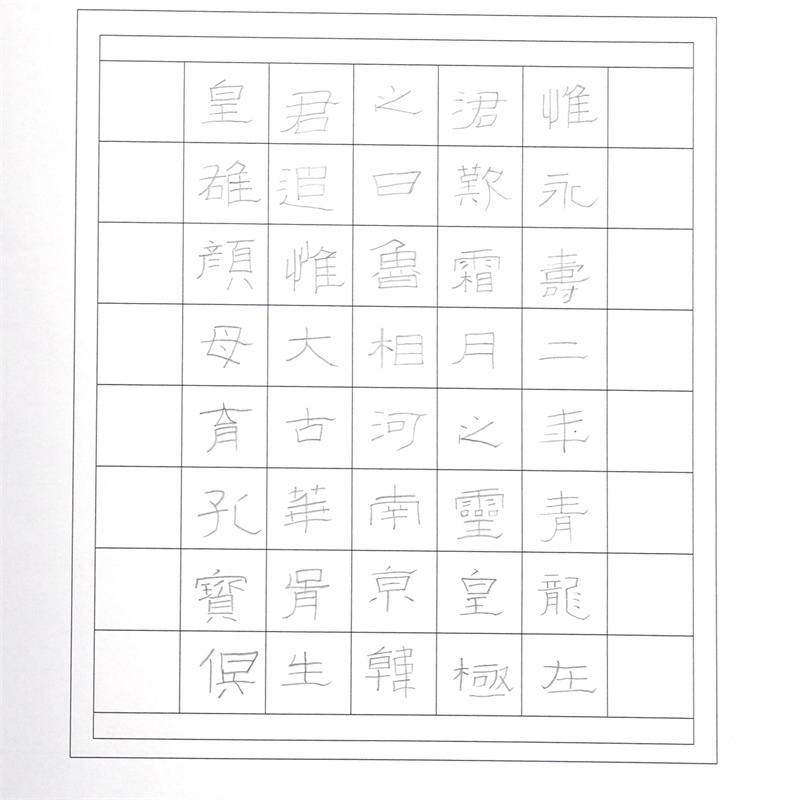 惟永壽二年青龍在
涒歎霜月之靈皇極
之日魯相河南京韓
君追惟大古華胥生
皇雄顏母育孔寶俱